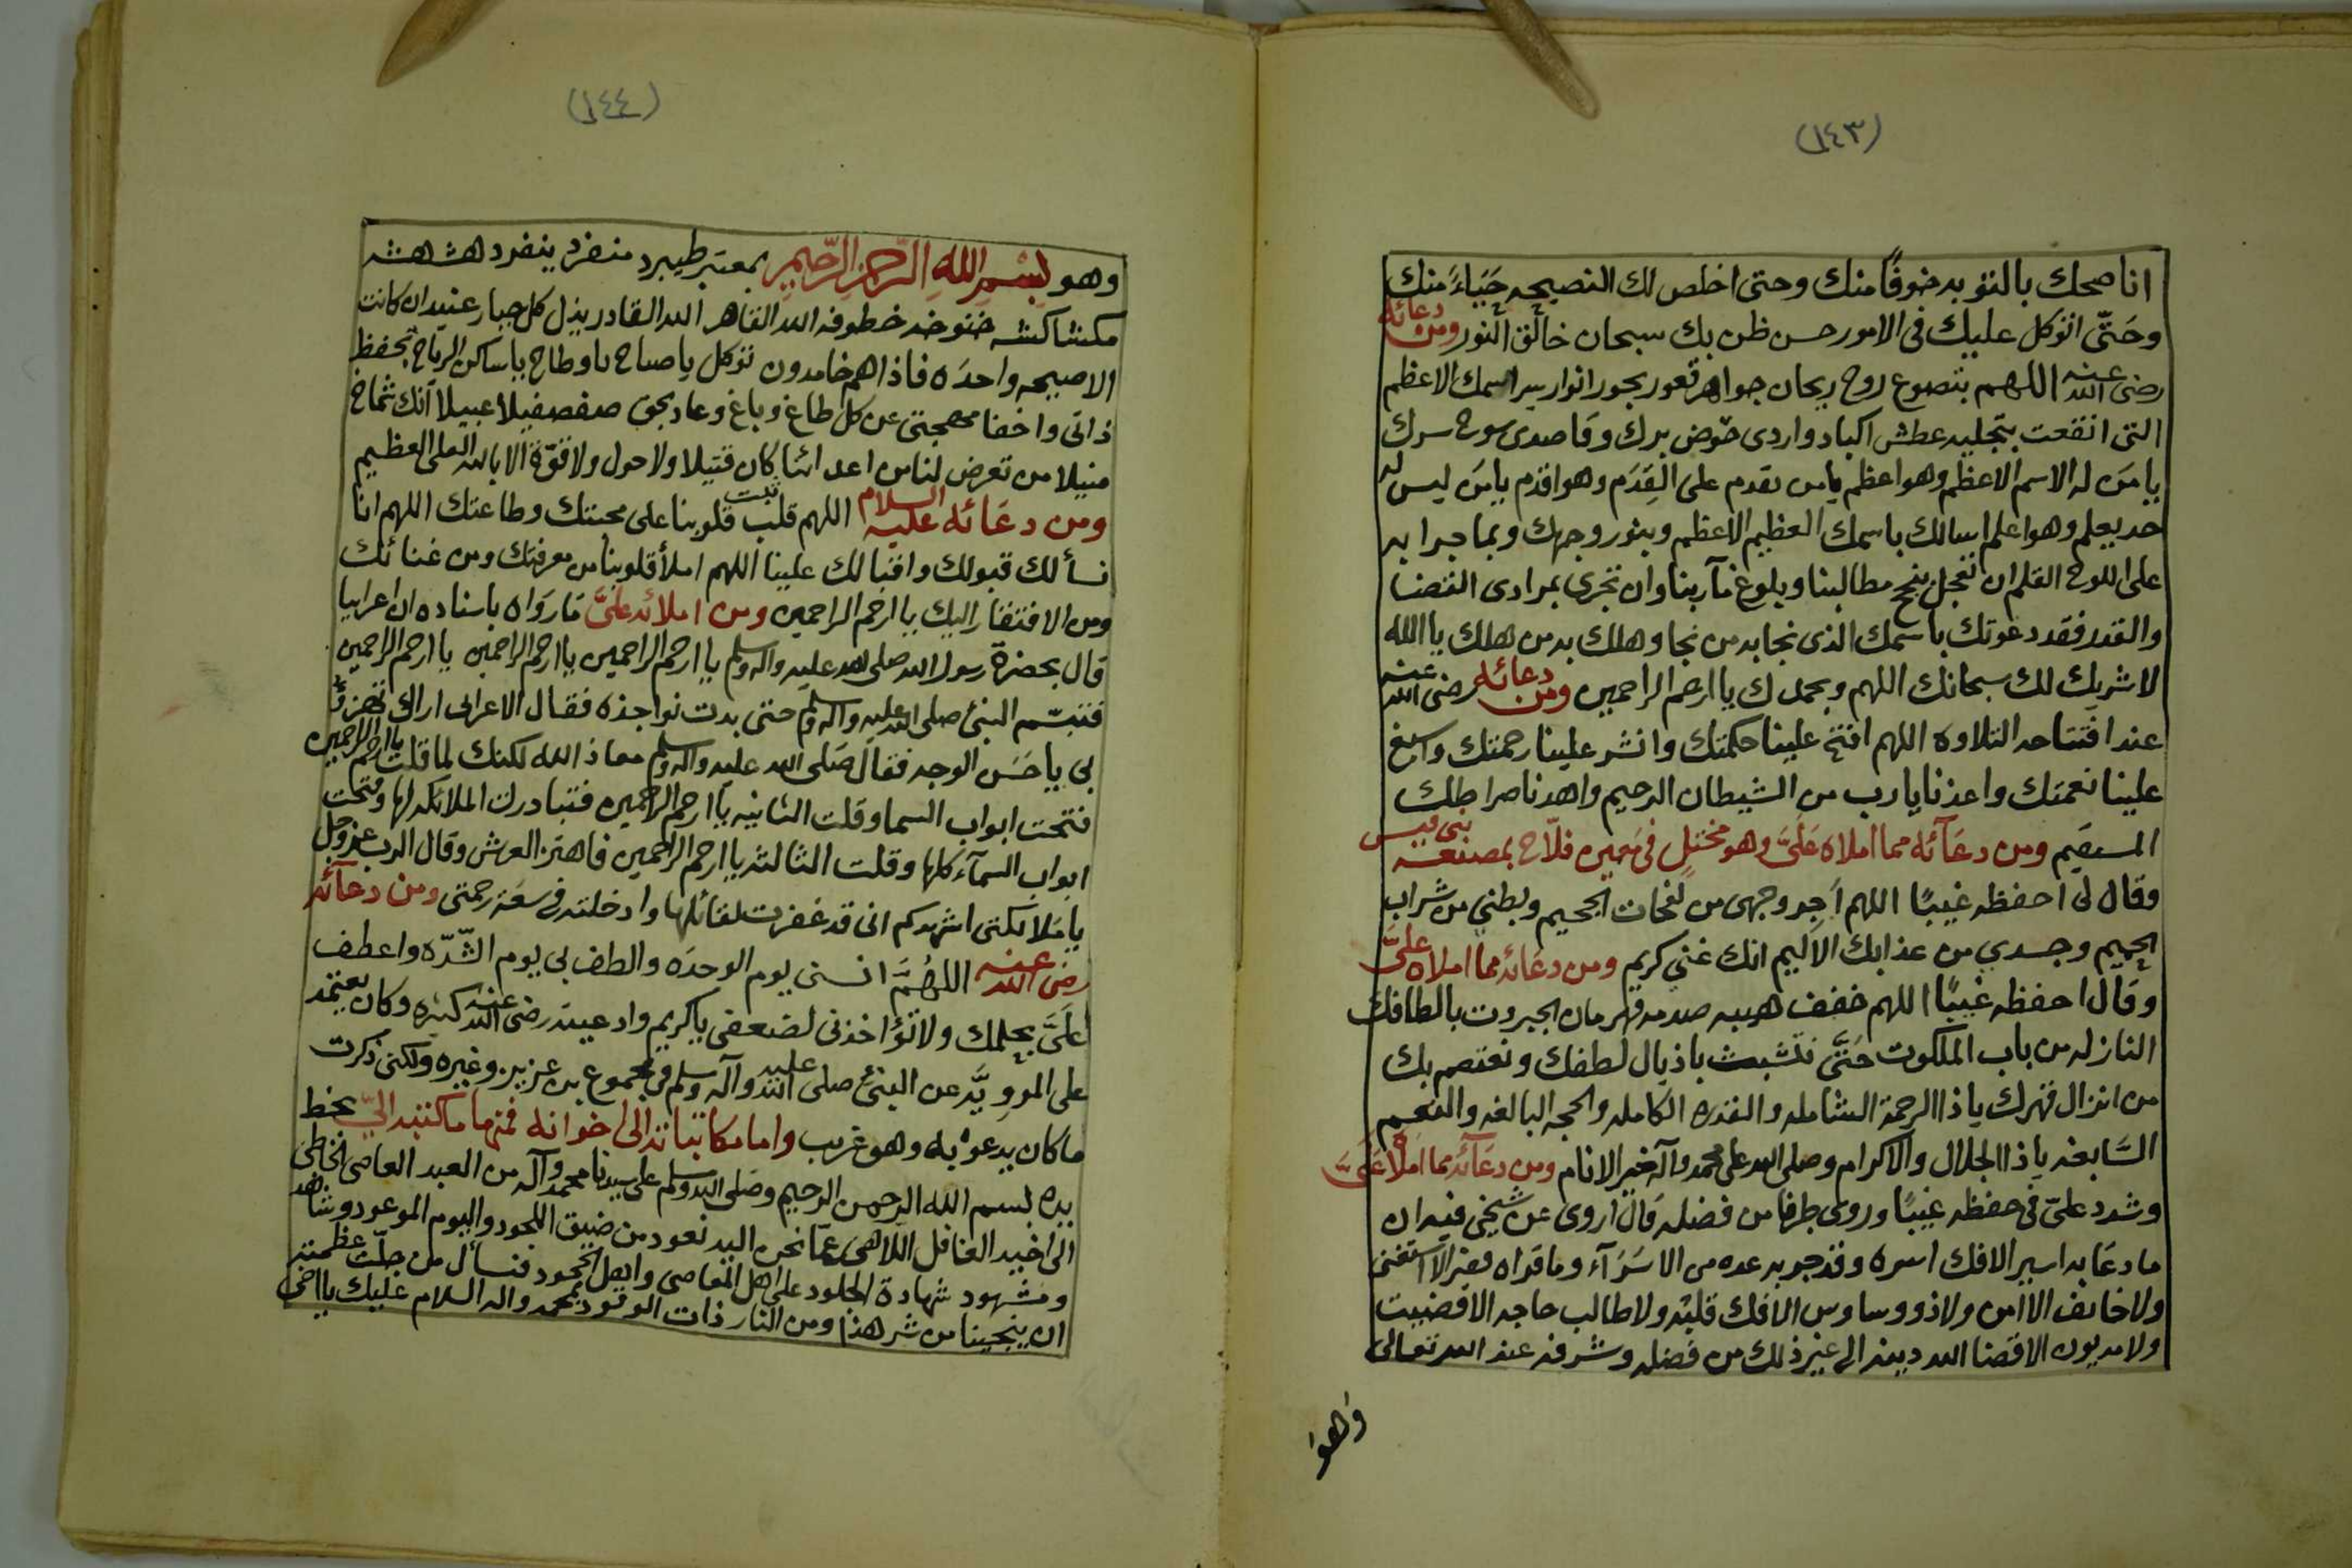 (١٤٣)
اناصحك بالتوبه خوفًا منك وحتى اخلص لك النصيحه حَيَاءً منك
وحَتّى اتوكل عليك فى الامور حسن ظن بك سبحان خالق النور ومن دعائه
رضى الله عنه اللهم بتضوع روح ريحان جواهر قعور بحور انوار سر اسمك الاعظم
التى انقعت بتجليه عطش اكباد واردى حَوض برك وقاصدى سوح سرك
يا مَن له الاسم الاعظم وهو اعظم يا من تقدم على القِدَم وهو اقدم يا مَن ليس له
حد يعلم وهو اعلم اسالك باسمك العظيم الاعظم وبنور وجهك وبما جرا به
على اللوح القلم ان تعجل بنجح مطالبنا وبلوغ مآربنا وان تجرى بمرادى القضا
والقدر فقد دعوتك باسمك الذى نجا به من نجا وهلك به من هلك يا الله
لا شريك لك سبحانك اللهم وبحمدك يا ارحم الراحمين ومن دعائه رضى الله عنه
عند افتتاحه التلاوه اللهم افتح علينا حكمتك وانشر علينا رحمتك واسبغ
علينا نعمتك واعذنا يا رب من الشيطان الرجيم واهدنا صراطك
المستقيم ومن دعآئه مما املاه عَلَيَّ وهو مختلٍ فى بمصنعة بنى قيس
وقال لى احفظه غيبًا اللهم اَجِر وجهى من لفحات الجحيم وبطني من شراب
الحميم وجسدي من عذابك الاليم انك غني كريم ومن دعَائه مما املاه عليَّ
وقال احفظه غيبًا اللهم خفف هيبه صدمه قهرمان الجبروت بالطافك
النازله من باب الملكوت حَتَّى نتشبث باذيال لطفك ونعتصم بك
من انزال قهرك يا ذا الرحمة الشامله والقدره الكامله والحجه البالغه والنعم
السَّابغه يا ذا الجلال والاكرام وصلى الله على محمد وآله خير الانام ومن دعآئه مما املاه عَلَيَّ
وشدد عليّ فى حفظه غيبًا وروى طرفا من فضله قال اروى عن شيخي فيه ان
ما دعَا به اسير الا فك اسره وقد جربه عده من الاسَرَآء وما قراه فقير الا استغنى
ولا خايف الا امن ولا ذو وساوس الا فك قلبه ولا طالب حاجه الا قضيت
ولا مديون الا قضا الله دينه الى غير ذلك من فضله وشرفه عند الله تعالى
وَهوَ
(١٤٤)
وهو بِسْمِ اللهِ الرَّحمنِ الرَّحِيمِ بمعتبر طيبرد منفرد ينفرد هشهشه
مكشاكشه خطوفه الله القاهر الله القادر يذل كل جبار عنيد ان كانت
الا صيحه واحدَه فاذاهم خامدون توكل يا صباح يا وطاح يا ساكن الرياح بحفظ
ذاتى واخفا مهجتى عن كل طاغ وباغ وعاد بحق صفصفيلا عبيلا انك شماخ
منيلا من تعرض لنا من اعدائنا كان قتيلا ولا حول ولا قوّة الا بالله العلي العظيم
ومن دعَائه عليه السلام اللهم قلب ثبت قلوبنا على محبتك وطاعتك اللهم انا
نسألك قبولك واقبالك علينا اللهم املأ قلوبنا من معرفتك ومن غنائك
ومن الافتقار اليك يا ارحم الراحمين ومن املائه عليَّ مَا روَاه باسناده ان اعرابيا
قال بحضرة رسول الله صلى الله عليه وآله وسلم يا ارحم الراحمين يا ارحم الراحمين يا ارحم الراحمين
فتبسّم النبئ صلى الله عليه وآله وسلم حتى بدت نواجذه فقال الاعرابى اراك تهزؤ
بي يا حَسَن الوجه فقال صَلى الله عليه وآله وسلم معاذ الله لكنك لما قلت يا ارحم الراحمين
فتحت ابواب السما وقلت الثانيه يا ارحم الراحمين فتبادرت الملائكه لها وفتحت
ابواب السمآء كلها وقلت الثالثه يا ارحم الراحمين فاهتز العرش وقال الرب عزوجل
يا مَلائكتى اشهدكم انى قد غفرت لقائلها وادخلته فى سعَة رحمتى ومن دعآئه
رضى الله عنه اللهُمَّ انسنى يوم الوحدَه والطف بي يوم الشّدّه واعطف
عليَّ بحلمك ولا تؤاخذنى لضعفى يا كريم وادعيته رضى الله عنه كثيره وكان يعتمد
على المرويَّه عن النبئ صلى الله عليه وآله وسلم فى مجموع بن عزيز وغيره ولكنى ذكرت
ماكان يدعوْ به وهو غريب واما مكاتباته الى اخوانه فمنها ما كتبه اليّ بخط
يده بسم الله الرحمن الرحيم وصَلى الله وسلم على سيدنا محمد وآله من العبد العاصى الخاطى
الى اخيه الغافل اللاهى عمّا نحن اليه نعود من ضيق اللحود واليوم الموعود وشاهد
ومشهود شهادة الجلود على اهل المعاصى واهل الجحود فنسأل من جلّت عظمته
ان ينجينا من شر هذا ومن النار ذات الوقود بمحمد واله السلام عليك يا اخى